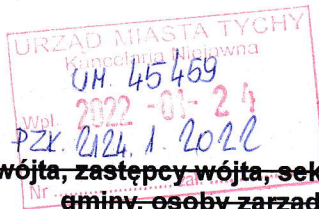 URZĄD MIASTA TYCHY
Kancelaria Niejawna
UM. 45459
Wpl. 2022 -01- 24
PZK. 2124. 1. 2022
wójta, zastępcy wójta, sek
Nr zał.
gminy, osoby zarząd